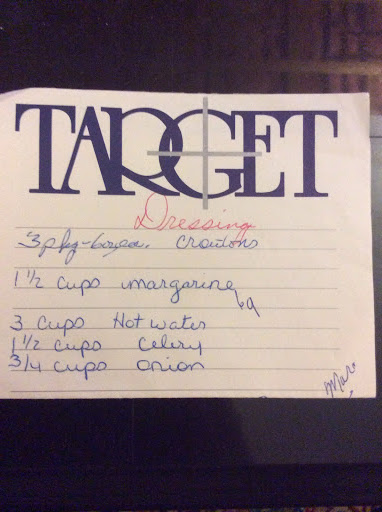 TARGET
Dressing
3 pkg - 6 oz. ea. Croutons
1 1/2 cups margarine
3 cups Hot water
1 1/2 cups Celery
3/4 cups onion